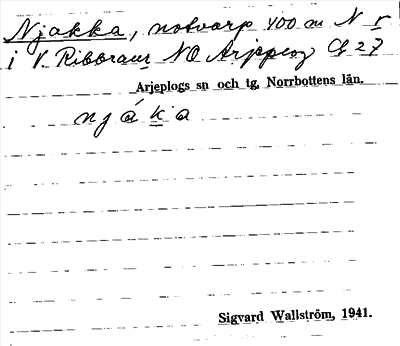 Njakka, notvarp 400 m N r
i V. Ribbraur NO Arjeplog Cf 27
Arjeplogs sn och tg, Norrbottens län.
njáka
Sigvard Wallström, 1941.